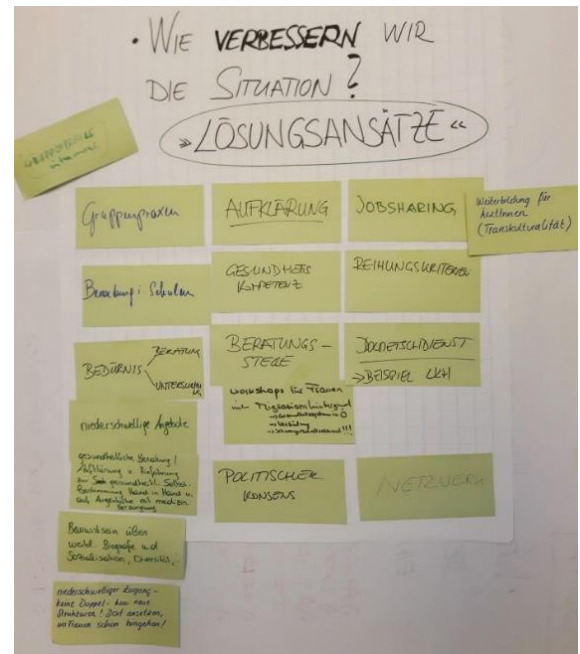 • WIE VERBESSERN WIR
DIE SITUATION?
»LÖSUNGSANSÄTZE«
Gruppenpraxen
AUFKLÄRUNG
JOBSHARING
Weiterbildung für
ÄrztInnen
(Transkulturalität)
Beratung i. Schulen
GESUNDHEITS
KOMPETENZ
REIHUNGSKRITERIEN
BEDÜRFNIS
BERATUNG
UNTERSUCHUNG
BERATUNGS-
STELLE
DOLMETSCHDIENST
→BEISPIEL LKH
workshops für Frauen
mit Migrationshintergrund
→Verhütung
niederschwellige Angebote
gesundheitliche Beratung /
Aufklärung u. Hinführung
zur gesundheitl. Selbst-
bestimmung Hand in Hand u.
auf Augenhöhe mit medizin.
Versorgung
POLITISCHER
KONSENS
NETZWERK
Bewusstsein über
weibl. Biografie und
Sozialisation, Diversität,..
niederschwelliger Zugang -
keine Doppel- bzw neue
Strukturen! Dort ansetzen,
wo Frauen schon hingehen!